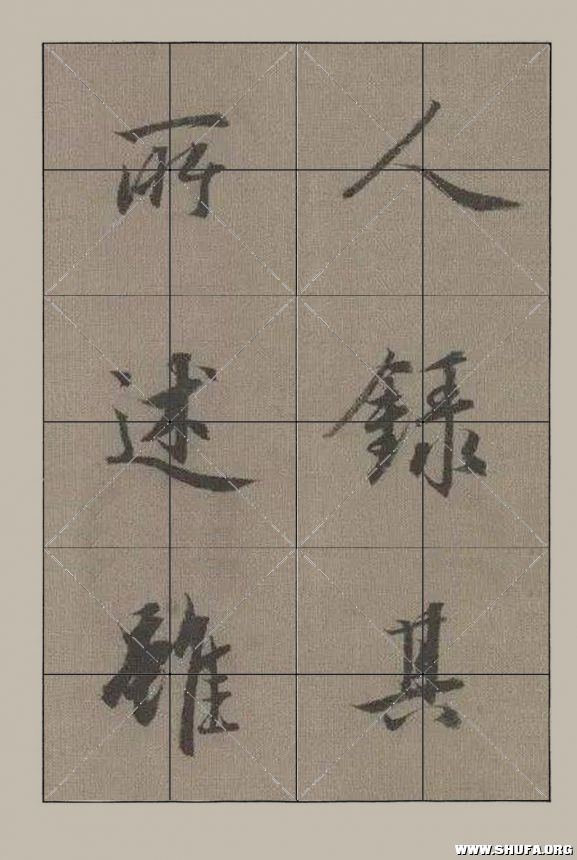 人錄其
所述雖
WWW.SHUFA.ORG